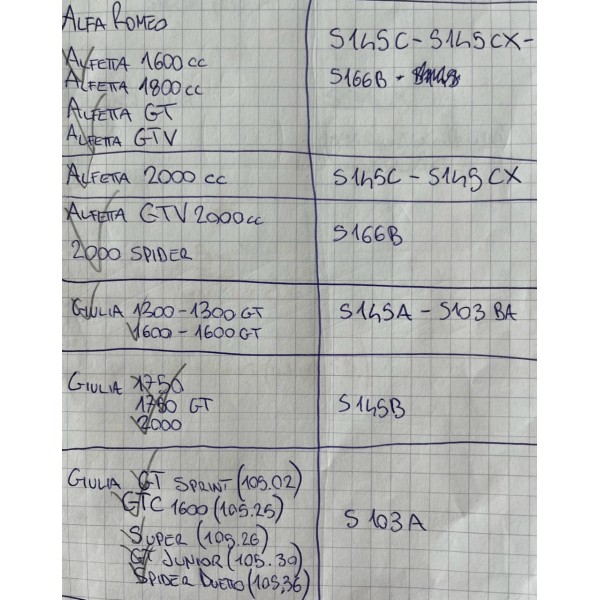 ALFA ROMEO
ALFETTA 1600 cc
ALFETTA 1800 cc
ALFETTA GT
ALFETTA GTV
S145C - S145CX -
S166B -
ALFETTA 2000 cc
S145C - S145CX
ALFETTA GTV 2000 cc
2000 SPIDER
S166B
GIULIA 1300 - 1300 GT
1600 - 1600 GT
S145A - S103 BA
GIULIA 1750
1750 GT
2000
S145B
GIULIA GT SPRINT (105.02)
GTC 1600 (105.25)
SUPER (105.26)
GT JUNIOR (105.30)
SPIDER DUETTO (105.36)
S103A